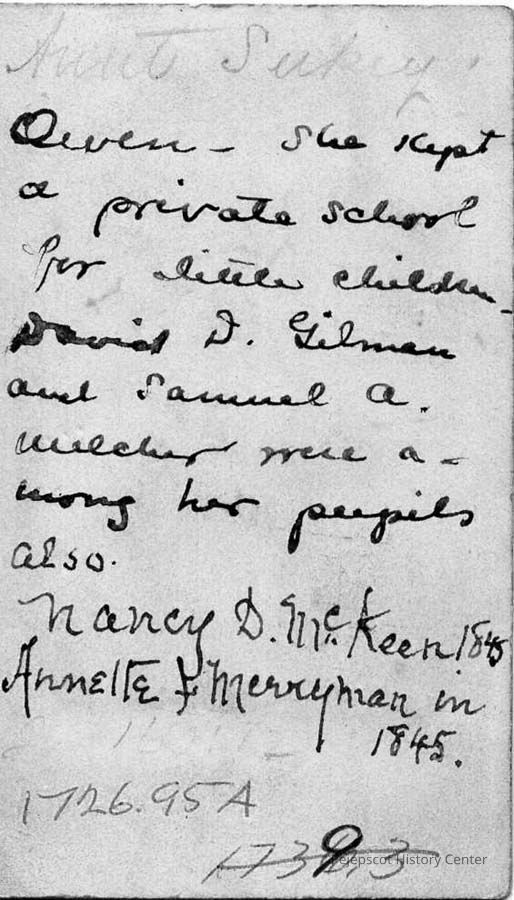 Aunt Sukey
Owen - She kept
a private school
for little children -
David D. Gilman
and Samuel A.
Melcher were a-
mong her pupils
also.
Nancy D. McKeen 1845
Annette F Merryman in
1845.
1726.95A
Pejepscot History Center